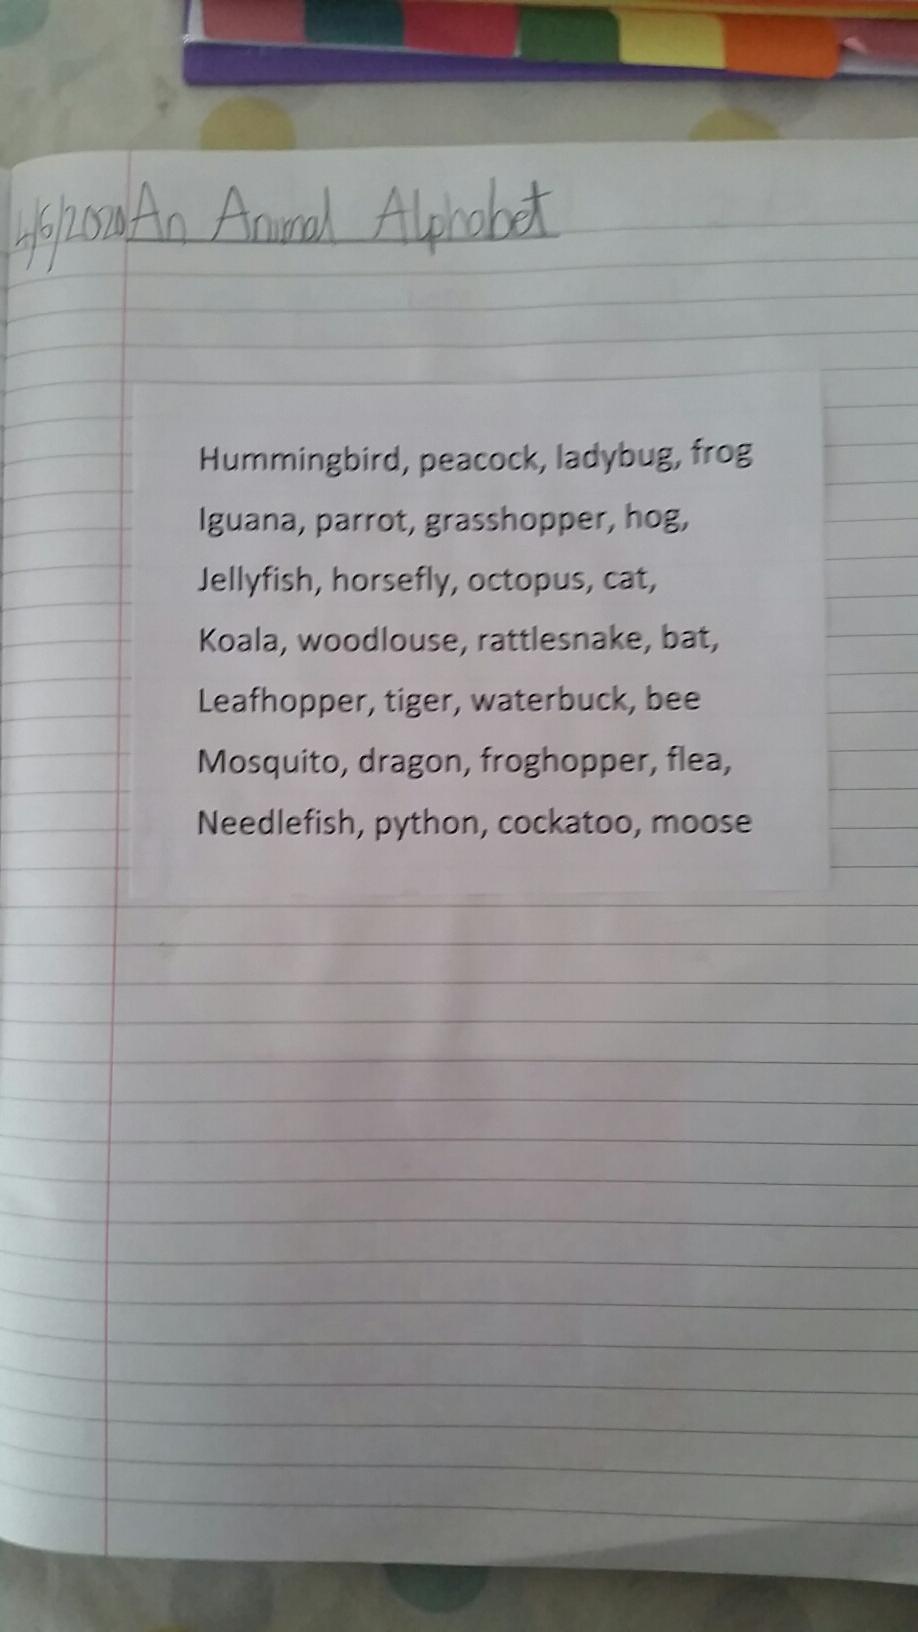 4/6/2020 An Animal Alphabet
Hummingbird, peacock, ladybug, frog
Iguana, parrot, grasshopper, hog,
Jellyfish, horsefly, octopus, cat,
Koala, woodlouse, rattlesnake, bat,
Leafhopper, tiger, waterbuck, bee
Mosquito, dragon, froghopper, flea,
Needlefish, python, cockatoo, moose